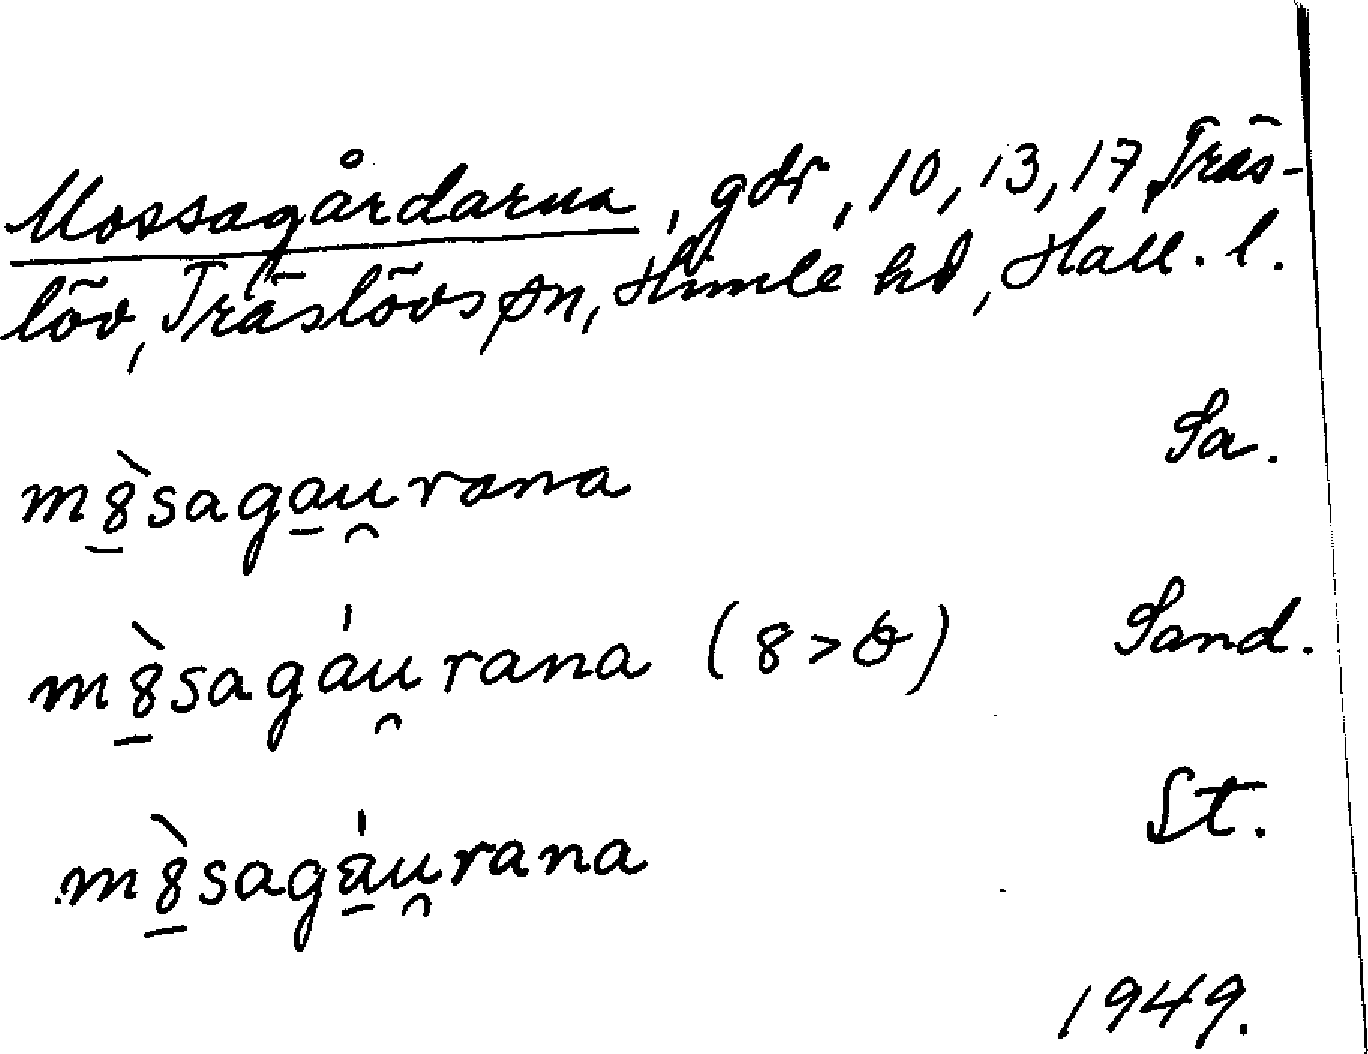 Mossagårdarna, gdr, 10, 13, 17 Träs-
löv, Träslövs sn, Himle hd, Hall. l.
Sa.
m8̱̀sagau̯rana
Sand.
m8̱̀sagáu̯rana (8>ꝋ)
St.
m8̱̀sagá̱u̯rana
1949.